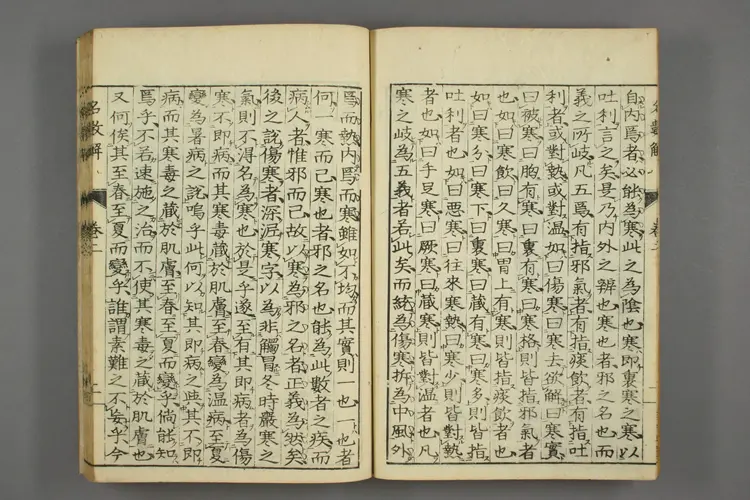 自内爲者必能爲寒此之爲陰也寒即裏寒之寒以
吐利言之矣是乃内外之辨也寒也者邪之名也而
義之所岐凡五爲有指邪氣者有指痰飲者有指吐
利者或對熱或對温如曰傷寒曰寒去欲解曰寒實
曰被寒曰胸有寒曰裏寒曰寒格則皆指邪氣者
也如曰寒飲曰久寒曰胃上有寒則皆指痰飲者也
如曰寒分曰寒下曰裏寒曰藏有寒曰寒多則皆指
吐利者也如曰惡寒曰往來寒熱曰寒少則皆對熱
者也如曰手足寒曰厥寒曰藏寒則皆對温者也凡
寒之岐爲五義者若此矣而統爲傷寒拆爲中風外
爲而熱内爲而寒雖如不均而其實則一也一也者
何一寒而已寒也者邪之名也能爲此數者之疾而
病人者惟邪而已故以寒爲邪之名者正義爲然矣
後之説傷寒者深泥寒字以爲非觸冒冬時嚴寒之
氣則不得名爲寒也於是乎遂至有其即病者爲傷
寒不即病而其寒毒藏於肌膚至春變爲温病至夏
變爲暑病之説嗚乎此何以知其即病之與其不即
病而其寒毒之藏於肌膚至春至夏而變乎倘能知
爲乎不若速施之治而不使其寒毒之藏於肌膚也
又何俟其至春至夏而變乎誰謂素難之不妄乎今
名數解
卷二
二